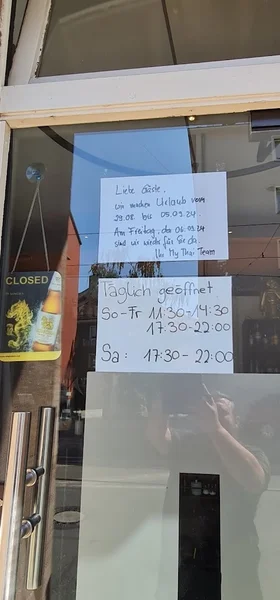 Liebe Gäste,
wir machen Urlaub vom
29.08. bis 05.09.24.
Am Freitag, den 06.09.24
sind wir wieder für Sie da.
Ihr My Thai Team
CLOSED
Täglich geöffnet
So-Fr 11:30-14:30
17:30-22:00
Sa: 17:30-22:00